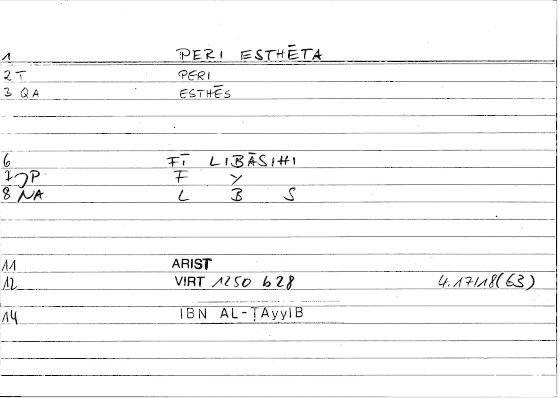 1 PERI ESTHĒTA
2 T PERI
3 QA ESTHĒS
6 FĪ LIBĀSIHI
7 JP F Y
8 NA L B S
11 ARIST
12 VIRT 1250 b 28 4.17/18(63)
14 IBN AL-ṬAyyIB